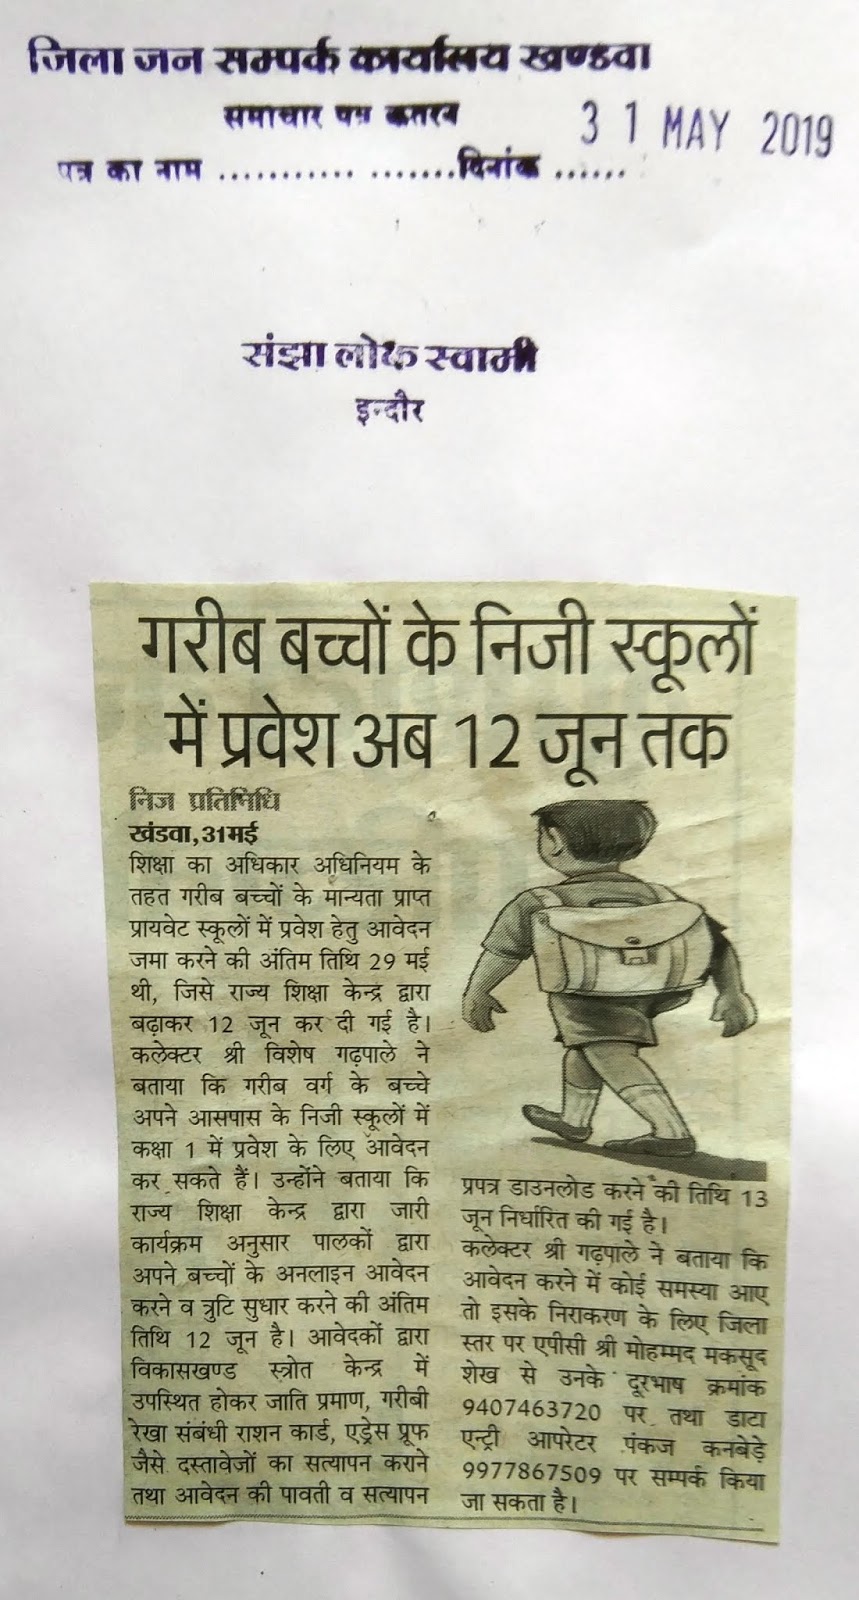 जिला जन सम्पर्क कार्यालय खण्डवा
समाचार पत्र कतरन
31 MAY 2019
पत्र का नाम ........... .......दिनांक ......
संझा लोक स्वामी
इन्दौर
गरीब बच्चों के निजी स्कूलों
में प्रवेश अब 12 जून तक
निज प्रतिनिधि
खंडवा, 31मई
शिक्षा का अधिकार अधिनियम के
तहत गरीब बच्चों के मान्यता प्राप्त
प्रायवेट स्कूलों में प्रवेश हेतु आवेदन
जमा करने की अंतिम तिथि 29 मई
थी, जिसे राज्य शिक्षा केन्द्र द्वारा
बढ़ाकर 12 जून कर दी गई है।
कलेक्टर श्री विशेष गढ़पाले ने
बताया कि गरीब वर्ग के बच्चे
अपने आसपास के निजी स्कूलों में
कक्षा 1 में प्रवेश के लिए आवेदन
कर सकते हैं। उन्होंने बताया कि
राज्य शिक्षा केन्द्र द्वारा जारी
कार्यक्रम अनुसार पालकों द्वारा
अपने बच्चों के अनलाइन आवेदन
करने व त्रुटि सुधार करने की अंतिम
तिथि 12 जून है। आवेदकों द्वारा
विकासखण्ड स्त्रोत केन्द्र में
उपस्थित होकर जाति प्रमाण, गरीबी
रेखा संबंधी राशन कार्ड, एड्रेस प्रूफ
जैसे दस्तावेजों का सत्यापन कराने
तथा आवेदन की पावती व सत्यापन
प्रपत्र डाउनलोड करने की तिथि 13
जून निर्धारित की गई है।
कलेक्टर श्री गढ़पाले ने बताया कि
आवेदन करने में कोई समस्या आए
तो इसके निराकरण के लिए जिला
स्तर पर एपीसी श्री मोहम्मद मकसूद
शेख से उनके दूरभाष क्रमांक
9407463720 पर तथा डाटा
एन्ट्री आपरेटर पंकज कनबेड़े
9977867509 पर सम्पर्क किया
जा सकता है।